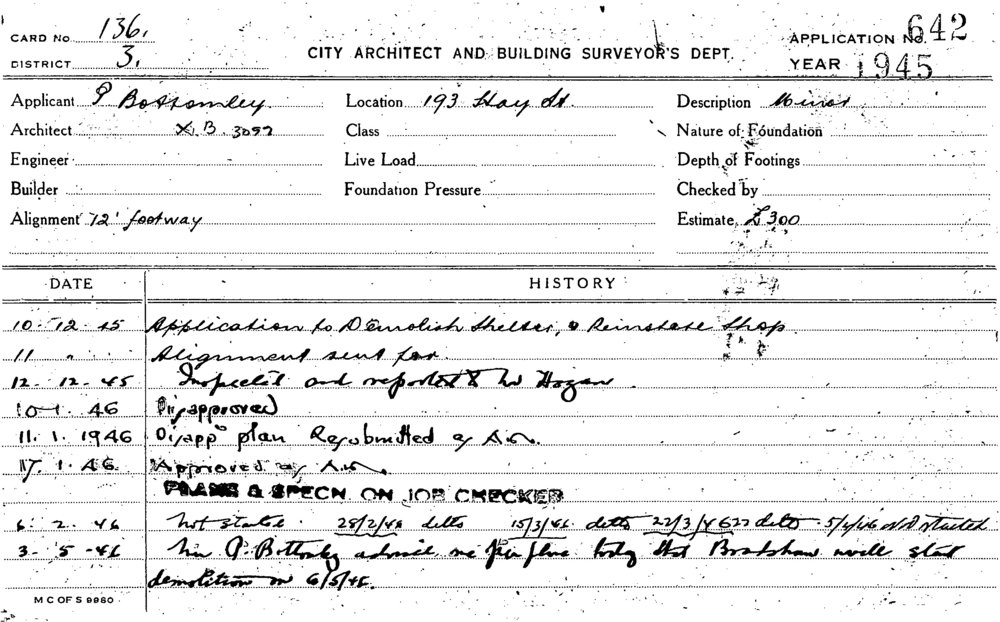 CARD No. 136.
DISTRICT 3.
CITY ARCHITECT AND BUILDING SURVEYOR'S DEPT.
APPLICATION No. 642
YEAR 1945
Applicant P Bottomley Location 193 Hay St Description Minor
Architect X.B. 3097 Class Nature of Foundation
Engineer Live Load Depth of Footings
Builder Foundation Pressure Checked by
Alignment 12' footway Estimate £300
DATE HISTORY
10. 12. 45 Application to Demolish Shelter, & Reinstate Shop
11 " Alignment sent for
12. 12. 45 Inspected and reported to Mr Hogan.
10. 1. 46 Disapproved
11. 1. 1946 Disappd plan Resubmitted
17. 1. 46 Approved
PLANS & SPECN ON JOB CHECKED
6. 2. 46 Not started. 28/2/46 ditto 15/3/46 ditto 22/3/46 ditto 5/4/46 Not started
3. 5. 46 Mr P. Bottomley advised me today that Bradshaw would start
demolition on 6/5/46.
M C OF S 9980